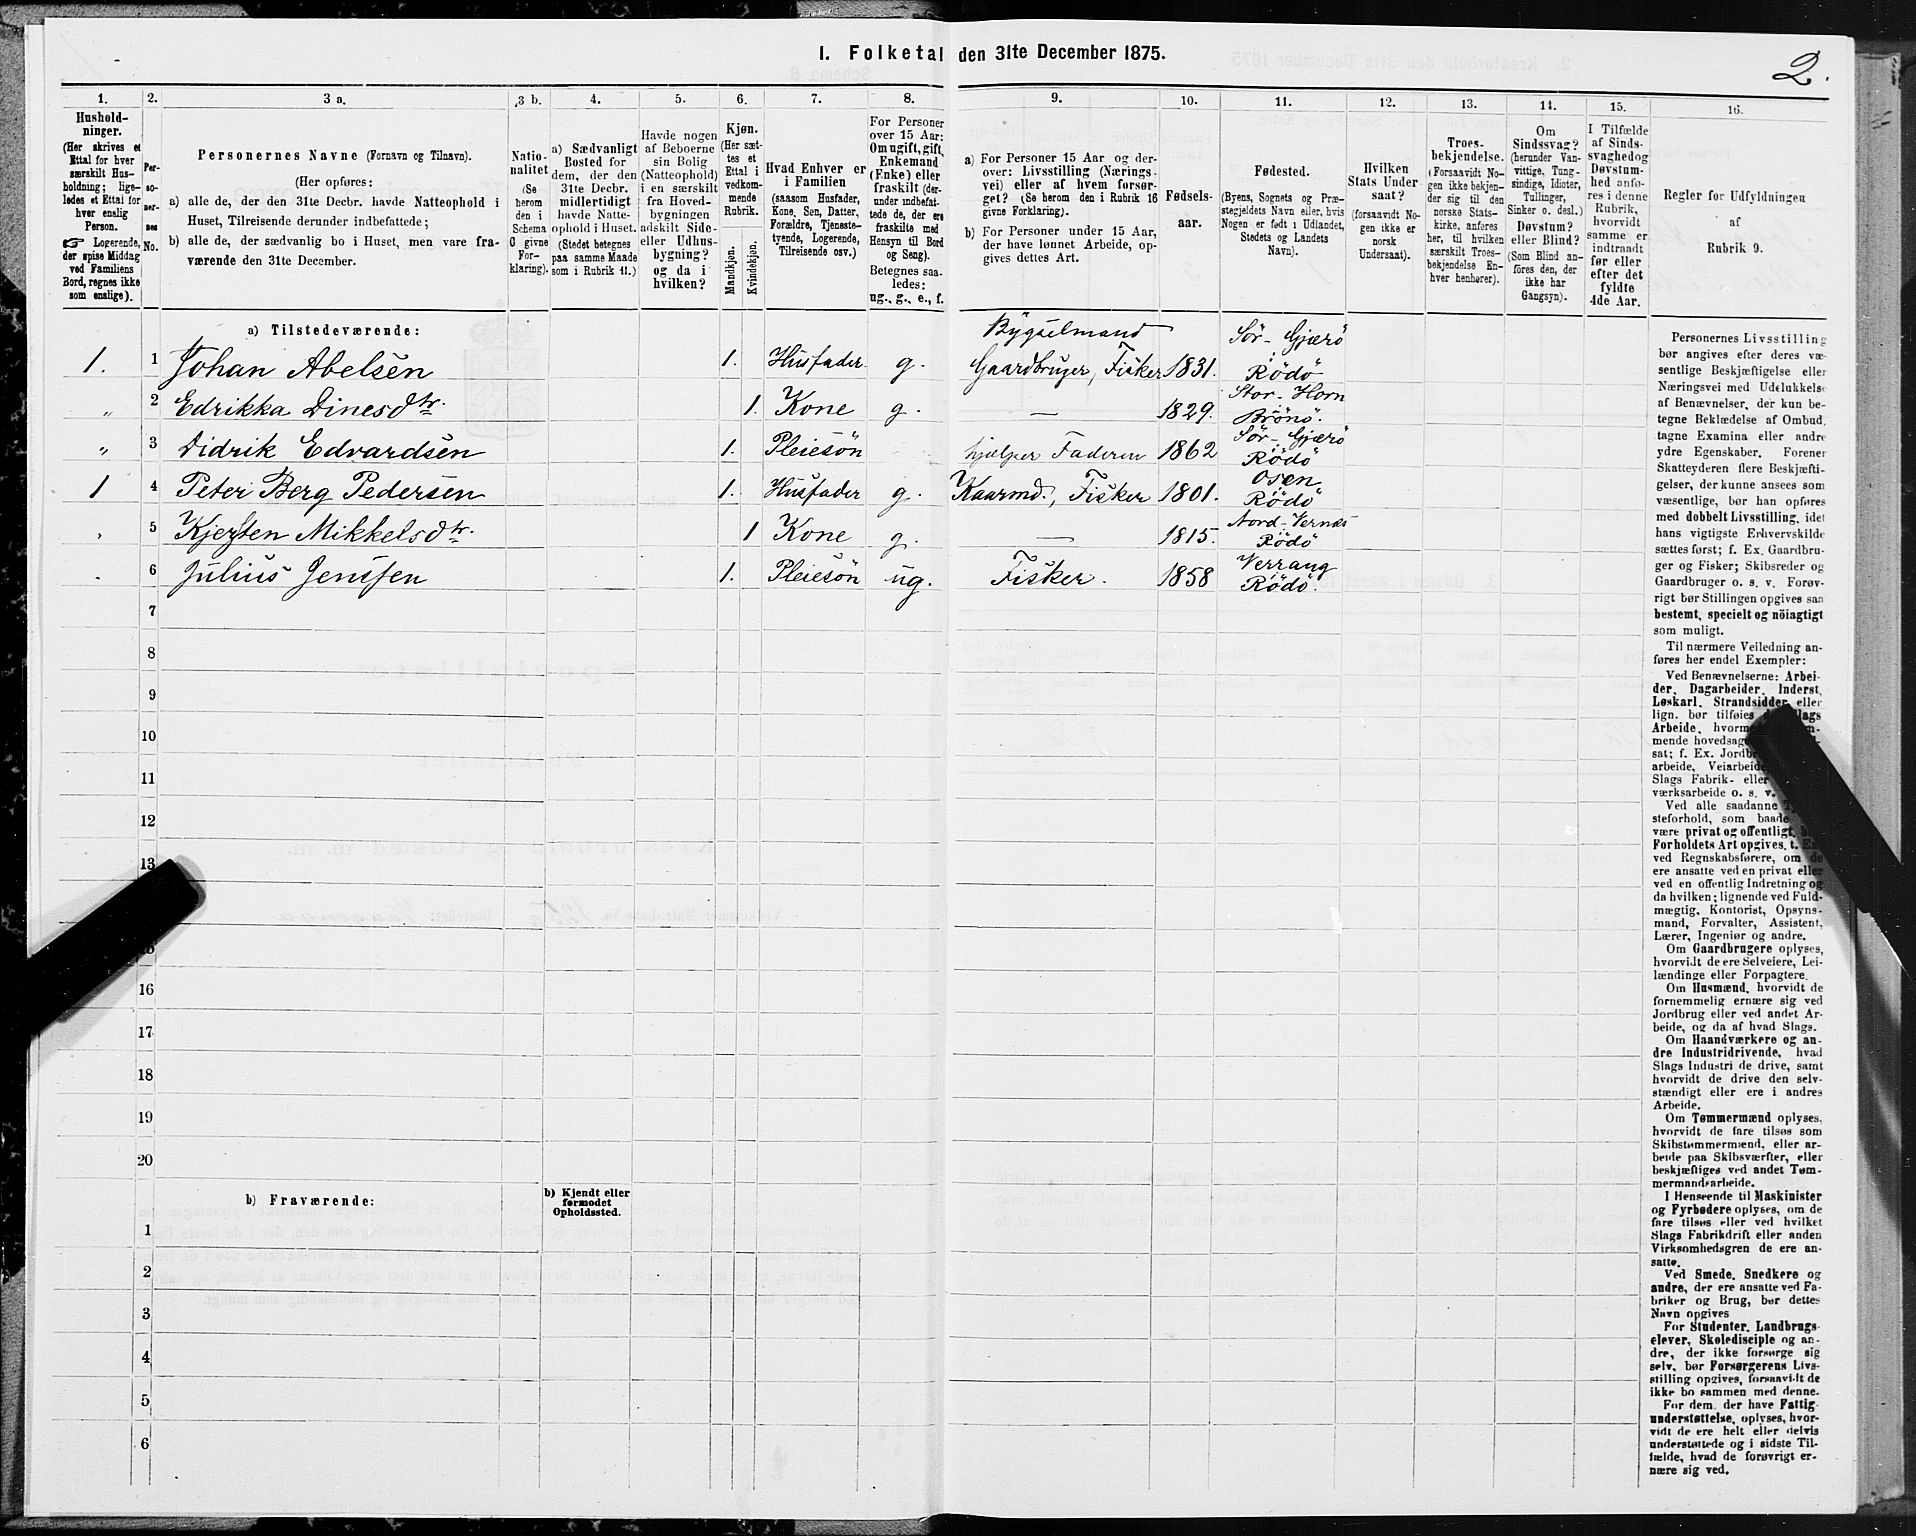 I. Folketal den 31te December 1875.
2.
1. 2. 3 a. 3 b. 4. 5. 6. 7. 8. 9. 10. 11. 12. 13. 14. 15. 16.
Hushold-
ninger.
(Her skrives et
Ettal for hver
særskilt Hus-
holdning; lige-
ledes et Ettal for
hver enslig
Person.
☞ Logerende,
der spise Middag
ved Familiens
Bord, regnes ikke
som enslige).
Per-
so-
ner-
nes
No.
Personernes Navne (Fornavn og Tilnavn).
(Her opføres:
a) alle de, der den 31te Decbr. havde Natteophold i
Huset, Tilreisende derunder indbefattede;
b) alle de, der sædvanlig bo i Huset, men vare fra-
værende den 31te December.
Natio-
nalitet
(Se
herom
den i
Schema
C givne
For-
klaring).
a) Sædvanligt
Bosted for
dem, der den
31te Decbr.
midlertidigt
havde Natte-
ophold i Huset.
(Stedet betegnes
paa samme Maade
som i Rubrik 11.)
Havde nogen
af Beboerne
sin Bolig
(Natteophold)
i en særskilt
fra Hoved-
bygningen
adskilt Side-
eller Udhus-
bygning?
og da i
hvilken?
Kjøn.
(Her sæt-
tes et
Ettal i
vedkom-
mende
Rubrik.
Mandkjøn.
Kvindekjøn.
Hvad Enhver er
i Familien
(saasom Husfader,
Kone, Søn, Datter,
Forældre, Tjeneste-
tyende, Logerende,
Tilreisende osv.)
For Personer
over 15 Aar:
Om ugift, gift,
Enkemand
(Enke) eller
fraskilt (der-
under indbefat-
tede de, der ere
fraskilte med
Hensyn til Bord
og Seng).
Betegnes saa-
ledes:
ug., g., e., f.
a) For Personer 15 Aar og der-
over: Livsstilling (Nærings-
vei) eller af hvem forsør-
get? (Se herom den i Rubrik 16
givne Forklaring).
b) For Personer under 15 Aar,
der have lønnet Arbeide, op-
gives dettes Art.
Fødsels-
aar.
Fødested.
(Byens, Sognets og Præ-
stegjeldets Navn eller, hvis
Nogen er født i Udlandet,
Stedets og Landets
Navn).
Hvilken
Stats Under
saat?
(forsaavidt No-
gen ikke er
norsk
Undersaat).
Troes-
bekjendelse.
(Forsaavidt No-
gen ikke bekjen-
der sig til den
norske Stats-
kirke, anføres
her, til hvilken
særskilt Troes-
bekjendelse En-
hver henhører).
Om
Sindssvag?
(herunder Van-
vittige, Tung-
sindige, Idioter,
Tullinger,
Sinker o. desl.)
Døvstum?
eller Blind?
(Som Blind an-
føres den, der
ikke har
Gangsyn).
I Tilfælde
af Sinds-
svaghed og
Døvstum-
hed anfø-
res i denne
Rubrik,
hvorvidt
samme er
indtraadt
før eller
efter det
fyldte
4de Aar.
Regler for Udfyldningen
af
Rubrik 9.
a) Tilstedeværende:
Bygselmand Sör-Gjærö
1. 1 Johan Abelsen 1. Husfader g. Gaardbruger, Fisker 1831. Rödö
Stor-Horn
„ 2 Edrikka Dinesdtr. 1. Kone g. — 1829. Brönö.
Sör-Gjærö
„ 3 Didrik Edvardsen 1. Pleiesön hjælper Faderen 1862 Rödö
Osen
1 4 Peter Berg Pedersen 1. Husfader g. Kaarmd., Fisker 1801. Rödö
Nord-Vernes
5 Kjersten Mikkelsdtr. 1 Kone g. — 1815. Rödö
Verrang
6 Julius Jensen 1. Pleiesön ug. Fisker. 1858 Rödö.
7
8
9
10
11
12
13
15
16
17
18
19
20
b) Fraværende:
b) Kjendt eller
formodet
Opholdssted.
1
2
3
4
5
6
Personernes Livsstilling
bør angives efter deres væ-
sentlige Beskjæftigelse eller
Næringsvei med Udelukkelse
af Benævnelser, der kun be-
tegne Beklædelse af Ombud,
tagne Examina eller andre
ydre Egenskaber. Forener
Skatteyderen flere Beskjæfti-
gelser, der kunne ansees som
væsentlige, bør han opføres
med dobbelt Livsstilling, idet
hans vigtigste Erhvervskilde
sættes først; f. Ex. Gaardbru-
ger og Fisker; Skibsreder og
Gaardbruger o. s. v. Forøv-
rigt bør Stillingen opgives saa
bestemt, specielt og nöiagtigt
som muligt.
Til nærmere Veiledning an-
føres her endel Exempler:
Ved Benævnelserne: Arbei-
der, Dagarbeider, Inderst,
Løskarl, Strandsidder eller
lign. bør tilføies Slags
Arbeide,
mende
sat; f. Ex.
arbeide, Veiarbeide
Slags Fabrik- eller
værksarbeide o. s. v.
Ved alle saadanne
steforhold, som baade
være privat og offentligt,
Forholdets Art opgives, t. Ex.
ved Regnskabsførere, om de
ere ansatte ved en privat eller
ved en offentlig Indretning og
da hvilken; lignende ved Fuld-
mægtig, Kontorist, Opsyns-
mand, Forvalter, Assistent,
Lærer, Ingeniør og andre.
Om Gaardbrugere oplyses,
hvorvidt de ere Selveiere, Lei-
lændinge eller Forpagtere.
Om Husmænd, hvorvidt de
fornemmelig ernære sig ved
Jordbrug eller ved andet Ar-
beide, og da af hvad Slags.
Om Haandværkere og an-
dre Industridrivende, hvad
Slags Industri de drive, samt
hvorvidt de drive den selv-
stændigt eller ere i andres
Arbeide.
Om Tømmermænd oplyses,
hvorvidt de fare tilsøs som
Skibstømmermænd, eller ar-
beide paa Skibsværfter, eller
beskjæftiges ved andet Tøm-
mermandsarbeide.
I Henseende til Maskinister
og Fyrbødere oplyses, om de
fare tilsøs eller ved hvilket
Slags Fabrikdrift eller anden
Virksomhedsgren de ere an-
satte.
Ved Smede, Snedkere og
andre, der ere ansatte ved Fa-
briker og Brug, bør dettes
Navn opgives
For Studenter, Landbrugs-
elever, Skoledisciple og an-
dre, der ikke forsørge sig
selv, bør Forsørgerens Livs-
stilling opgives, forsaavidt de
ikke bo sammen med denne.
For dem, der have Fattig-
understøttelse, oplyses, hvor-
vidt de ere helt eller delvis
understøttede og i sidste Til-
fælde, hvad de forøvrigt er-
nære sig ved.